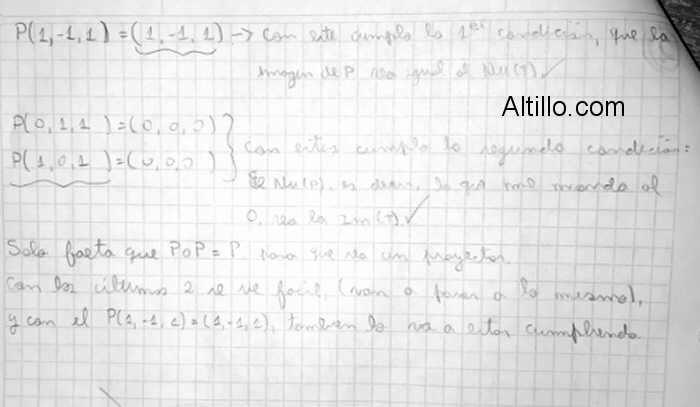 P(1,-1,1) = (1,-1,1) → Con este cumplo la 1era condición, que la
imagen de P sea igual al Nu(T) ✓
Altillo.com
P(0,1,1) = (0,0,0)
P(1,0,1) = (0,0,0)
Con estos cumplo la segunda condición:
Nu(P), es decir, lo que me manda al
0, sea la Im(T). ✓
Solo falta que PoP = P para que sea un proyector.
Con los últimos 2 se ve facil, (van a parar a lo mismo),
y con el P(1,-1,1) = (1,-1,1), tambien lo va a estar cumpliendo